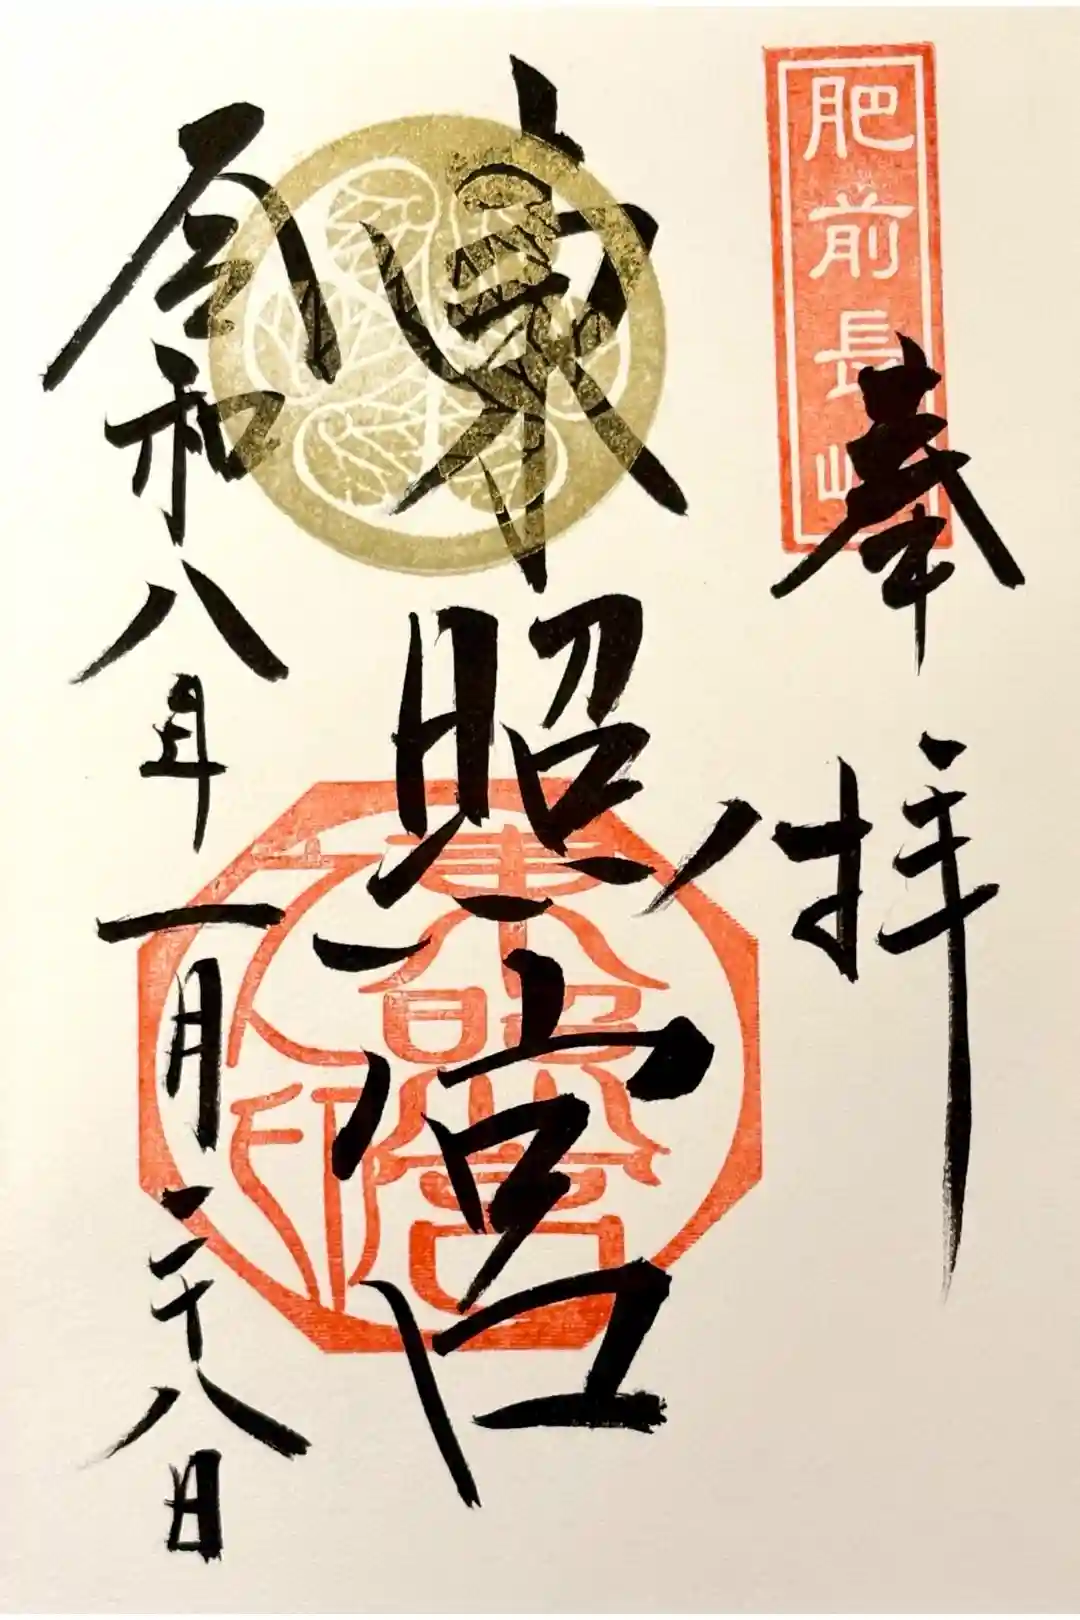 肥前長崎
奉拝
東照宮
東照宮
之印
令和八年一月二十八日